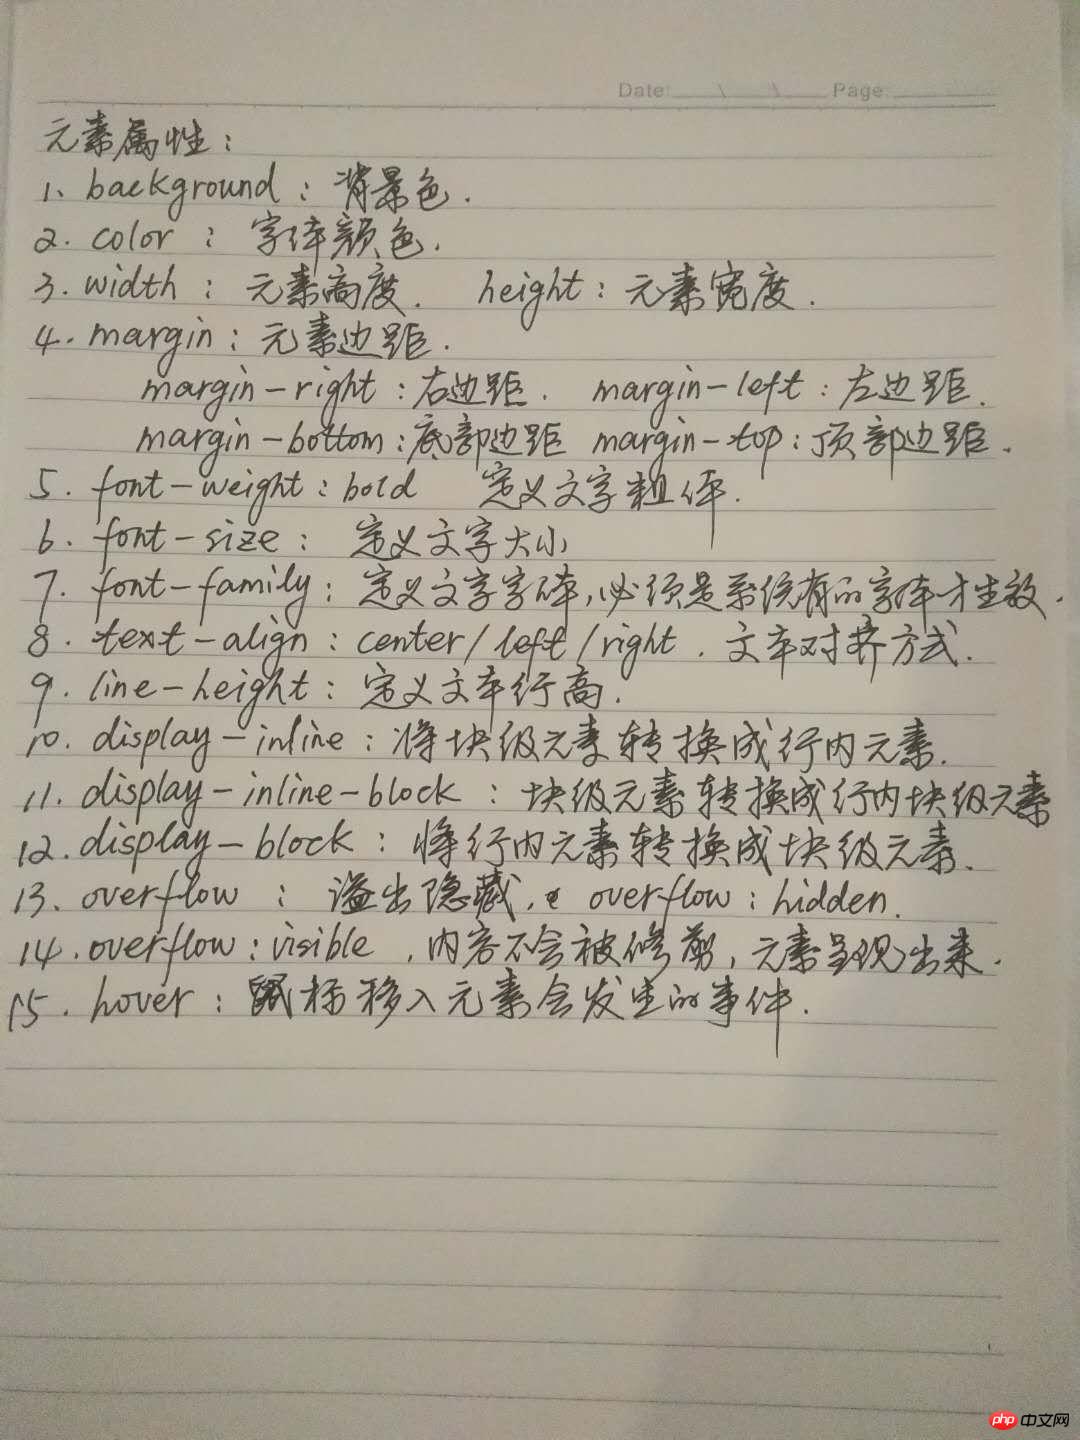 Date: Page:
元素属性：
1、background：背景色.
2. color：字体颜色.
3. width：元素高度. height：元素宽度.
4. margin：元素边距.
margin-right：右边距. margin-left：左边距.
margin-bottom：底部边距 margin-top：顶部边距.
5. font-weight：bold 定义文字粗体.
6. font-size：定义文字大小
7. font-family：定义文字字体，必须是系统有的字体才生效.
8. text-align：center/left/right. 文本对齐方式.
9. line-height：定义文本行高.
10. display-inline：将块级元素转换成行内元素.
11. display-inline-block：块级元素转换成行内块级元素
12. display-block：将行内元素转换成块级元素.
13. overflow：溢出隐藏, overflow：hidden.
14. overflow：visible，内容不会被修剪，元素呈现出来.
15. hover：鼠标移入元素会发生的事件.
php 中文网